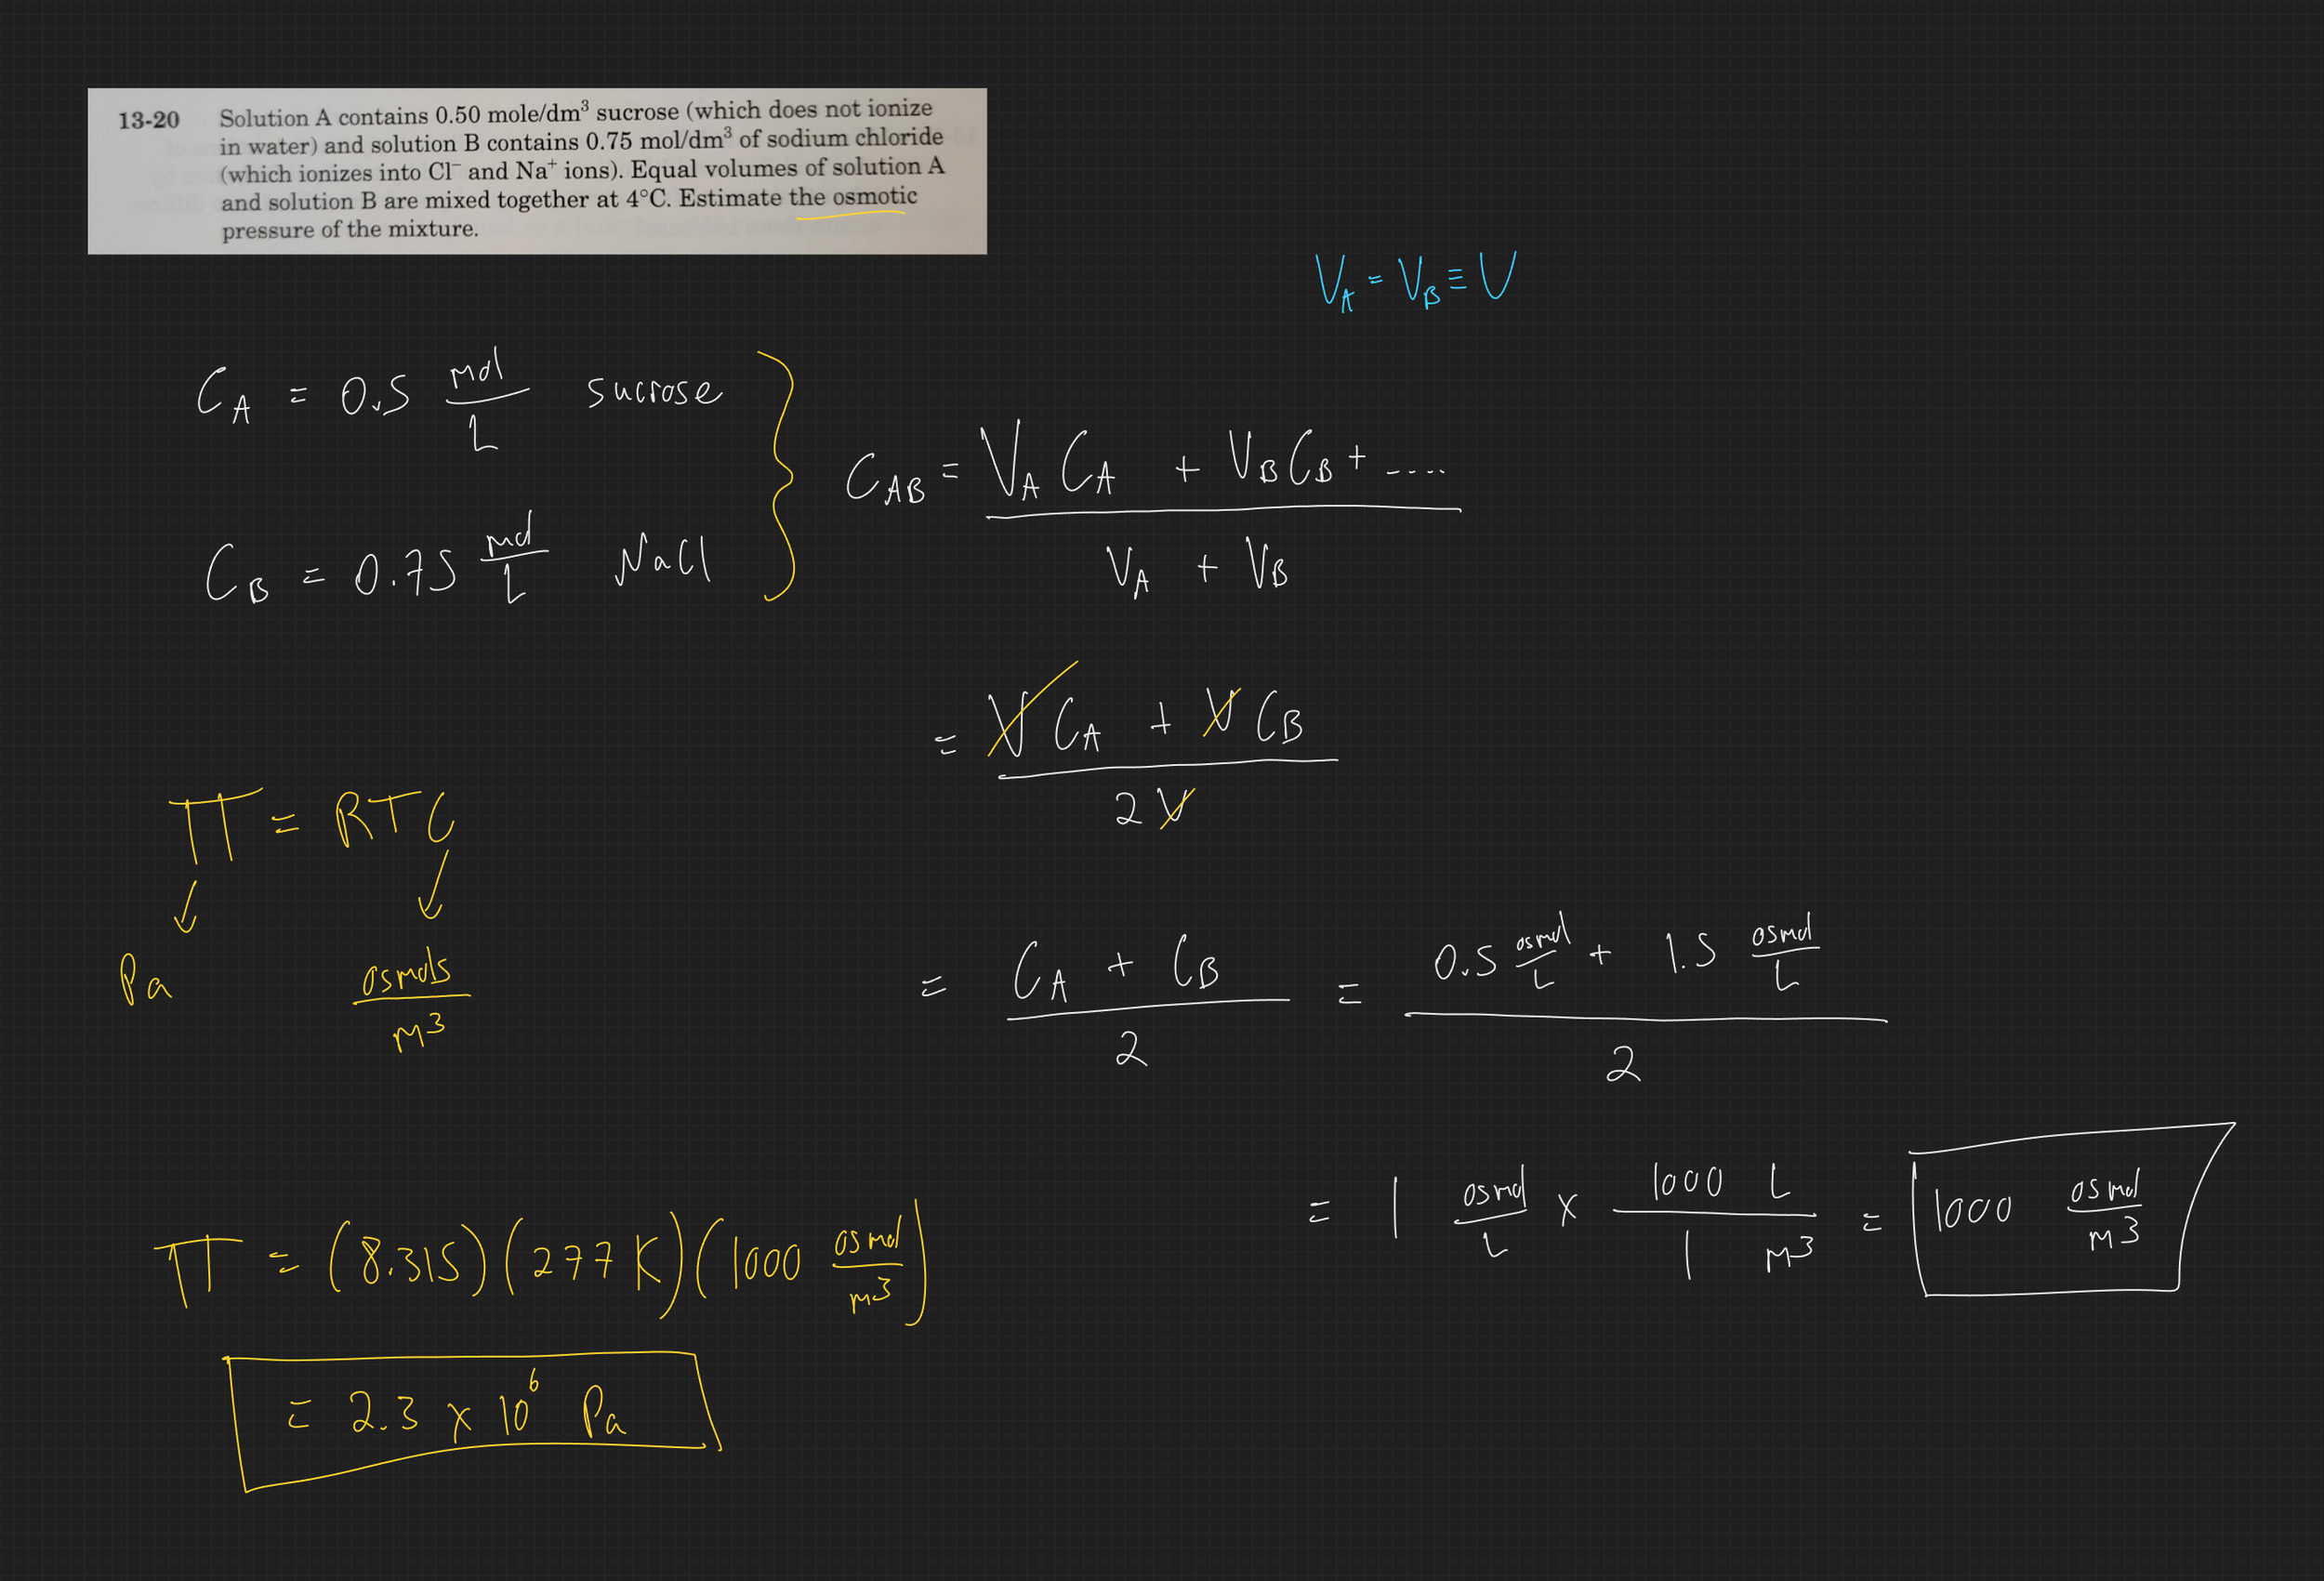 13-20 Solution A contains 0.50 mole/dm³ sucrose (which does not ionize
in water) and solution B contains 0.75 mol/dm³ of sodium chloride
(which ionizes into Cl⁻ and Na⁺ ions). Equal volumes of solution A
and solution B are mixed together at 4°C. Estimate the osmotic
pressure of the mixture.
V_A = V_B ≡ V
C_A = 0.5 mol/L sucrose
C_B = 0.75 mol/L NaCl
C_AB = (V_A C_A + V_B C_B + ....) / (V_A + V_B)
= (V C_A + V C_B) / 2V
= (C_A + C_B) / 2 = (0.5 osmol/L + 1.5 osmol/L) / 2
= 1 osmol/L × 1000 L / 1 m³ = 1000 osmol/m³
Π = RTC
Pa osmols/m³
Π = (8.315)(277 K)(1000 osmol/m³)
= 2.3 × 10⁶ Pa